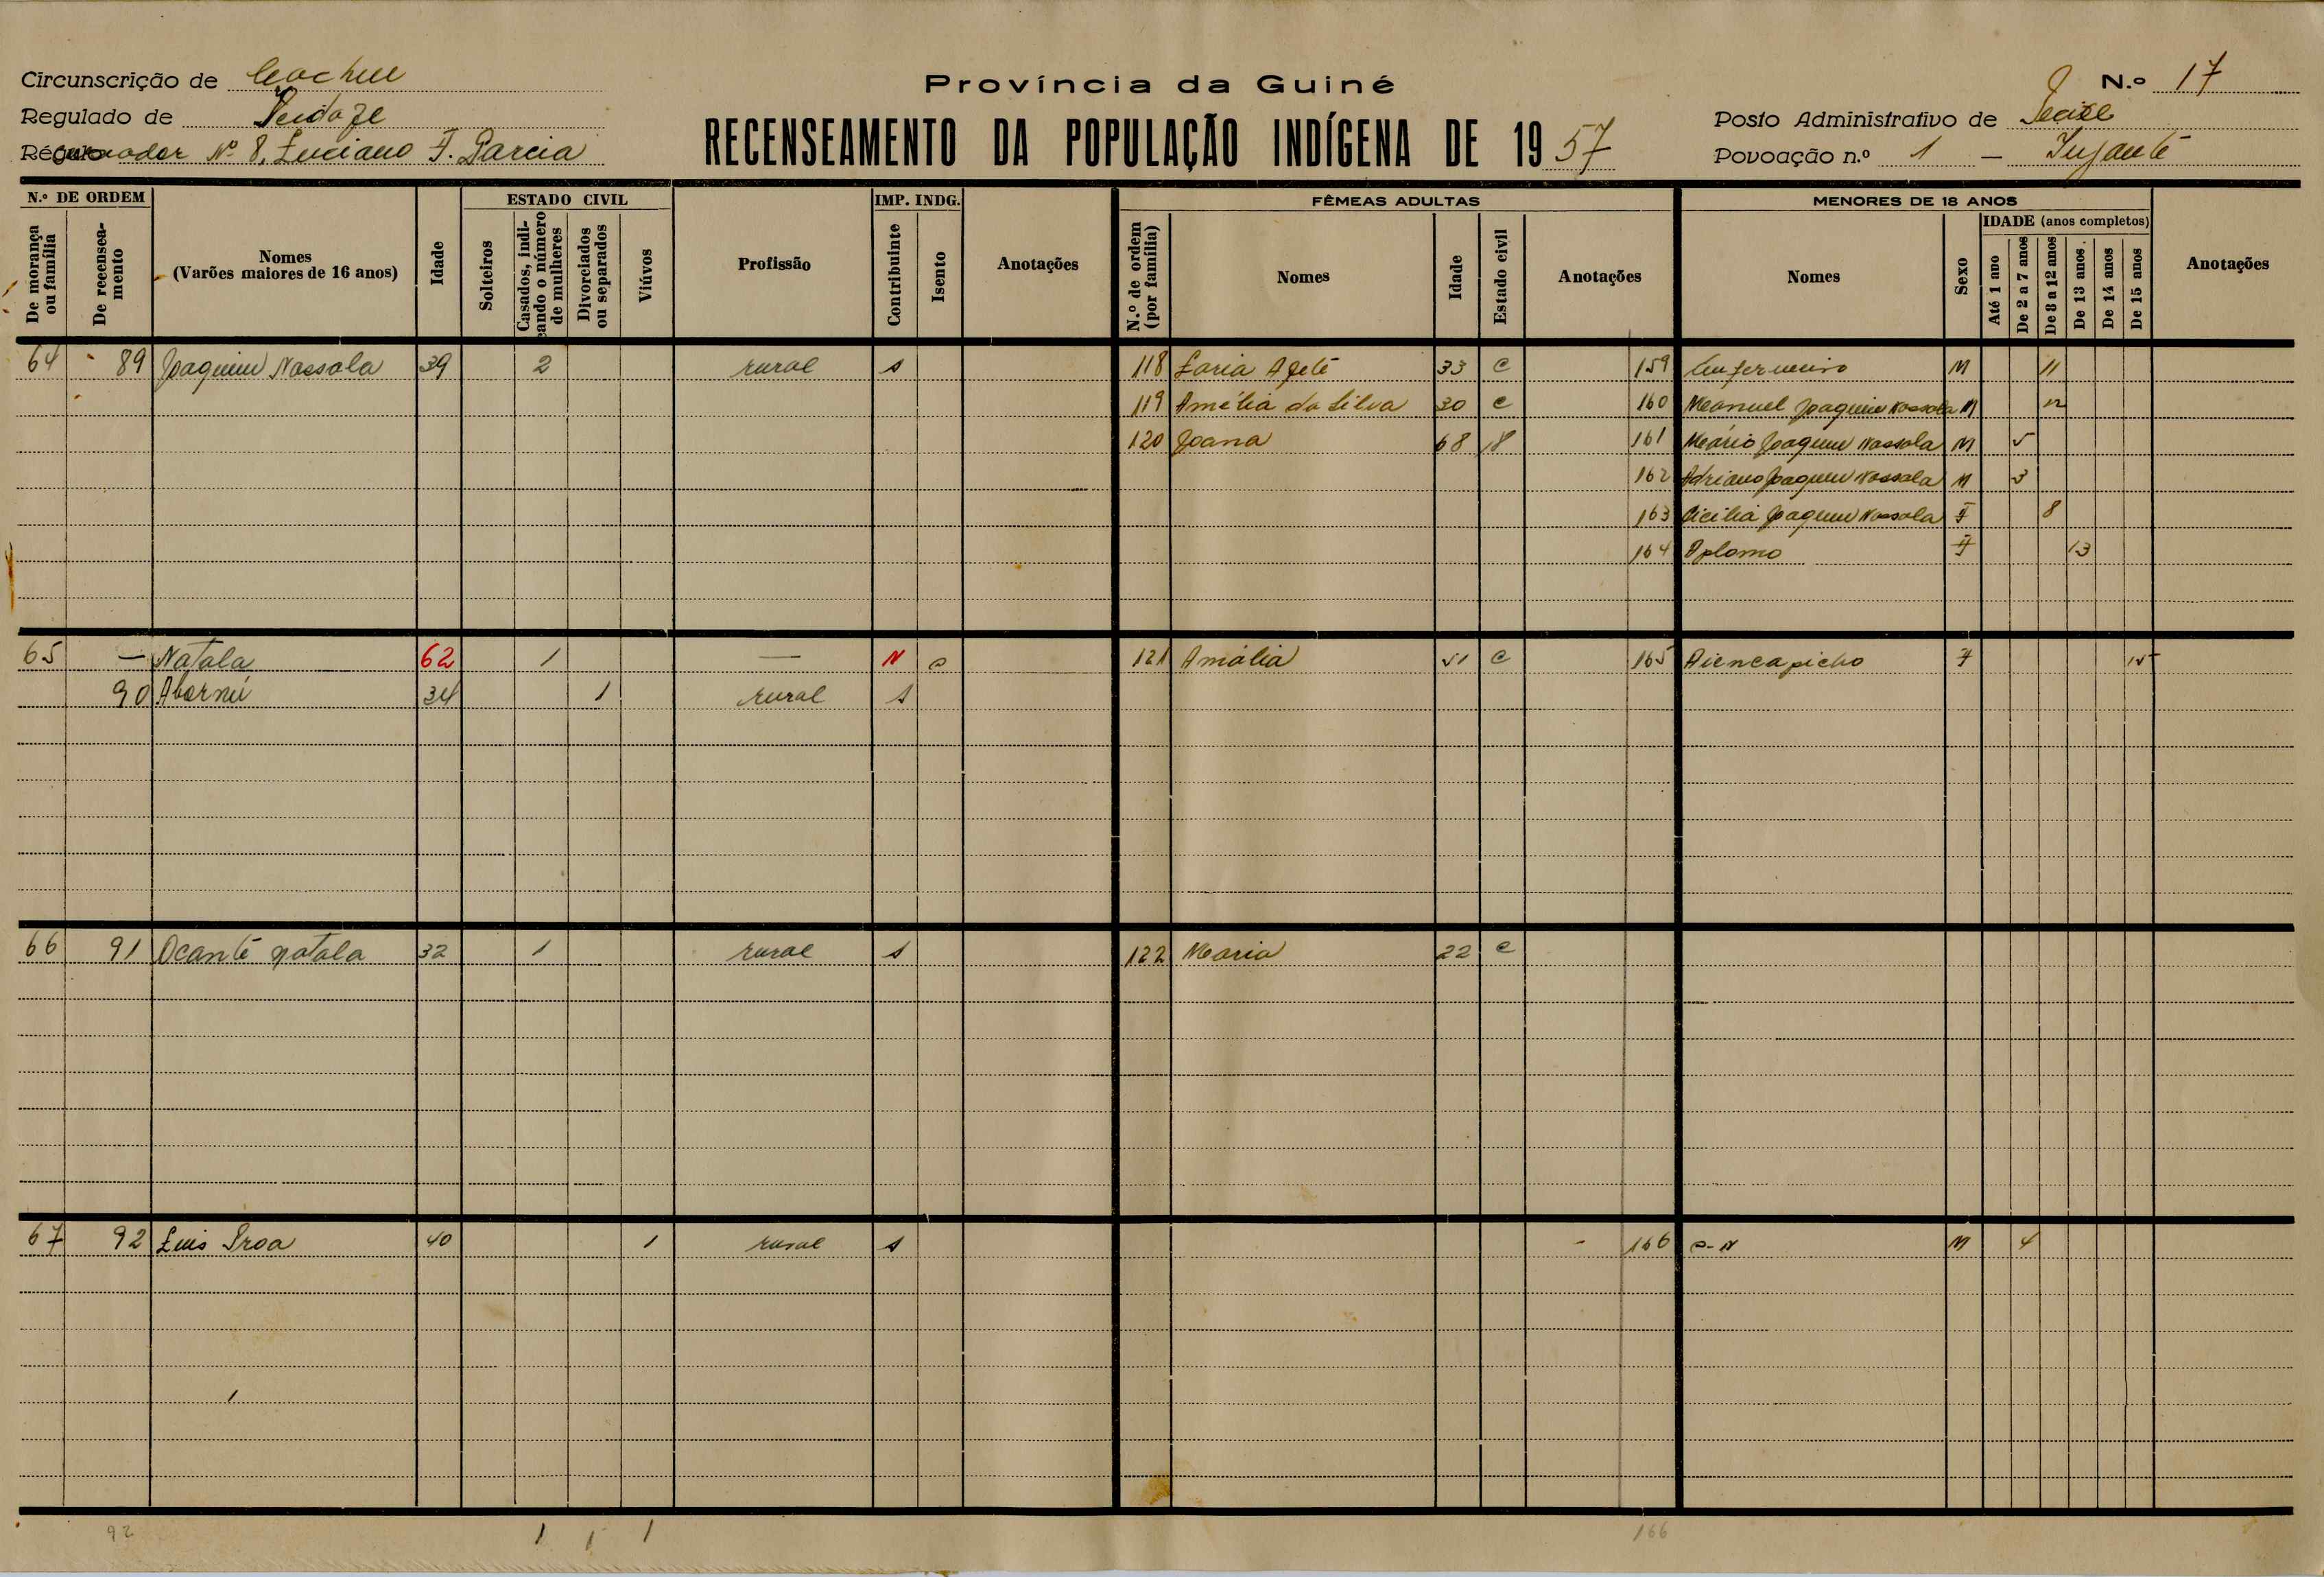 Circunscrição de Cacheu
Província da Guiné
N.º 17
Regulado de
RECENSEAMENTO DA POPULAÇÃO INDÍGENA DE 1957
Posto Administrativo de
Nº 8, Luciano F. Garcia
Povoação n.º 1 –
N.º DE ORDEM
De morança ou família
De recenseamento
Nomes
(Varões maiores de 16 anos)
Idade
ESTADO CIVIL
Solteiros
Casados, indicando o número de mulheres
Divorciados ou separados
Viúvos
Profissão
IMP. INDG.
Contribuinte
Isento
Anotações
FÊMEAS ADULTAS
N.º de ordem (por família)
Nomes
Idade
Estado civil
Anotações
MENORES DE 18 ANOS
Nomes
Sexo
IDADE (anos completos)
Até 1 ano
De 2 a 7 anos
De 8 a 12 anos
De 13 anos
De 14 anos
De 15 anos
Anotações
64 89 Joaquim Nassala 39 2 rural s 118 33 C 159 Enfermeiro M 11
119 Amélia da Silva 30 C 160 Manuel Joaquim Nassala M 12
120 Joana 68 161 Mário Joaquim Nassala M 5
162 Adriano Joaquim Nassala M 3
163 Joaquim Nassala F 8
164 F 13
65 — Natala 62 1 — N 121 Amália 51 C 165 F 15
90 34 1 rural s
66 91 Ocanté Natala 32 1 rural s 122 Maria 22 C
67 92 Luis 40 1 rural s 166 M 4
92 1 1 1 166